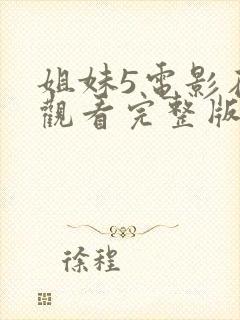 姐妹5電影在
觀看完整版
徐程